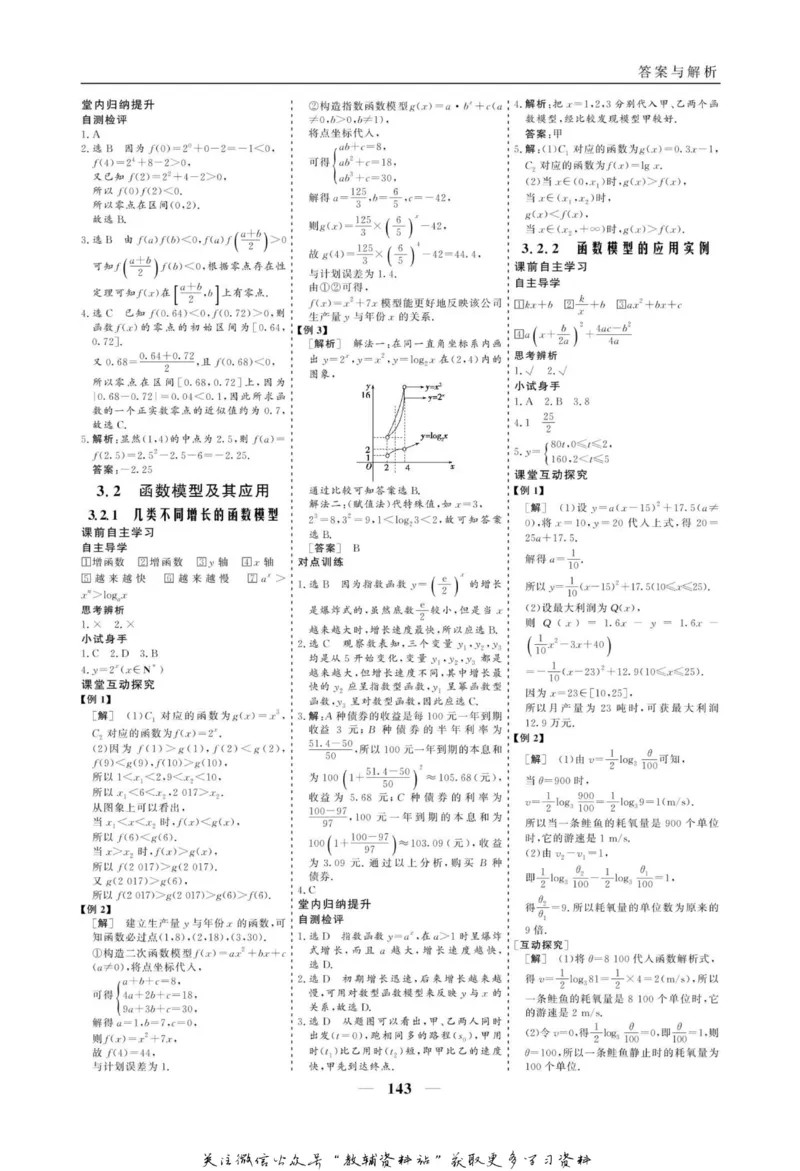 答案与解析
堂内归纳提升
自测检评
1.A
2.选 B 因为 f(0)=2⁰+0-2=-1<0,
f(4)=2⁴+8-2>0,
又已知 f(2)=2²+4-2>0,
所以 f(0)f(2)<0.
所以零点在区间(0,2).
故选 B.
3.选 B 由 f(a)f(b)<0,f(a)f((a+b)/2)>0
可知 f((a+b)/2)f(b)<0,根据零点存在性
定理可知 f(x)在[(a+b)/2,b]上有零点.
4.选 C 已知 f(0.64)<0,f(0.72)>0,则
函数 f(x)的零点的初始区间为[0.64,
0.72].
又 0.68=(0.64+0.72)/2,且 f(0.68)<0,
所以零点在区间[0.68,0.72]上,因为
|0.68-0.72|=0.04<0.1,因此所求函
数的一个正实数零点的近似值约为 0.7,
故选 C.
5.解析:显然(1,4)的中点为 2.5,则 f(a)=
f(2.5)=2.5²-2.5-6=-2.25.
答案:-2.25
3.2 函数模型及其应用
3.2.1 几类不同增长的函数模型
课前自主学习
自主导学
1增函数 2增函数 3y 轴 4x 轴
5越来越快 6越来越慢 7aˣ>
xⁿ>logₐx
思考辨析
1.× 2.×
小试身手
1.C 2.D 3.B
4.y=2ˣ(x∈N*)
课堂互动探究
【例 1】
[解] (1)C₁ 对应的函数为 g(x)=x³,
C₂ 对应的函数为 f(x)=2ˣ.
(2)因为 f(1)>g(1),f(2)<g(2),
f(9)<g(9),f(10)>g(10),
所以 1<x₁<2,9<x₂<10,
所以 x₁<6<x₂,2 017>x₂.
从图象上可以看出,
当 x₁<x<x₂ 时,f(x)<g(x),
所以 f(6)<g(6).
当 x>x₂ 时,f(x)>g(x),
所以 f(2 017)>g(2 017).
又 g(2 017)>g(6),
所以 f(2 017)>g(2 017)>g(6)>f(6).
【例 2】
[解] 建立生产量 y 与年份 x 的函数,可
知函数必过点(1,8),(2,18),(3,30).
①构造二次函数模型 f(x)=ax²+bx+c
(a≠0),将点坐标代入,
可得{a+b+c=8,
4a+2b+c=18,
9a+3b+c=30,
解得 a=1,b=7,c=0,
则 f(x)=x²+7x,
故 f(4)=44,
与计划误差为 1.
②构造指数函数模型 g(x)=a·bˣ+c(a
≠0,b>0,b≠1),
将点坐标代入,
可得{ab+c=8,
ab²+c=18,
ab³+c=30,
解得 a=125/3,b=6/5,c=-42,
则 g(x)=125/3×(6/5)ˣ-42,
故 g(4)=125/3×(6/5)⁴-42=44.4,
与计划误差为 1.4.
由①②可得,
f(x)=x²+7x 模型能更好地反映该公司
生产量 y 与年份 x 的关系.
【例 3】
[解析] 解法一:在同一直角坐标系内画
出 y=2ˣ,y=x²,y=log₂x 在(2,4)内的
图象,
y
16
y=x²
y=2ˣ
y=log₂x
2
1
O 2 4 x
通过比较可知答案选 B.
解法二:(赋值法)代特殊值,如 x=3,
2³=8,3²=9,1<log₂3<2,故可知答案
选 B.
[答案] B
对点训练
1.选 B 因为指数函数 y=(e/2)ˣ 的增长
是爆炸式的,虽然底数 e/2 较小,但是当 x
越来越大时,增长速度最快,所以应选 B.
2.选 C 观察数表知,三个变量 y₁,y₂,y₃
均是从 5 开始变化,变量 y₁,y₂,y₃ 都是
越来越大,但增长速度不同,其中增长最
快的 y₂ 应呈指数型函数,y₁ 呈幂函数型
函数,y₃ 呈对数型函数,因此应选 C.
3.解:A 种债券的收益是每 100 元一年到期
收益 3 元;B 种债券的半年利率为
(51.4-50)/50,所以 100 元一年到期的本息和
为 100(1+(51.4-50)/50)²≈105.68(元),
收益为 5.68 元;C 种债券的利率为
(100-97)/97,100 元一年到期的本息和为
100(1+(100-97)/97)≈103.09(元),收益
为 3.09 元.通过以上分析,购买 B 种
债券.
4.C
堂内归纳提升
自测检评
1.选 D 指数函数 y=aˣ,在 a>1 时呈爆炸
式增长,而且 a 越大,增长速度越快,
选 D.
2.选 D 初期增长迅速,后来增长越来越
慢,可用对数型函数模型来反映 y 与 x 的
关系,故选 D.
3.选 D 从题图可以看出,甲、乙两人同时
出发(t=0),跑相同多的路程(s₀),甲用
时(t₁)比乙用时(t₂)短,即甲比乙的速度
快,甲先到达终点.
4.解析:把 x=1,2,3 分别代入甲、乙两个函
数模型,经比较发现模型甲较好.
答案:甲
5.解:(1)C₁ 对应的函数为 g(x)=0.3x-1,
C₂ 对应的函数为 f(x)=lg x.
(2)当 x∈(0,x₁)时,g(x)>f(x),
当 x∈(x₁,x₂)时,
g(x)<f(x),
当 x∈(x₂,+∞)时,g(x)>f(x).
3.2.2 函数模型的应用实例
课前自主学习
自主导学
1kx+b 2k/x+b 3ax²+bx+c
4a(x+b/2a)²+(4ac-b²)/4a
思考辨析
1.√ 2.√
小试身手
1.A 2.B 3.8
4.1 25/2
5.y={80t,0≤t≤2,
160,2<t≤5
课堂互动探究
【例 1】
[解] (1)设 y=a(x-15)²+17.5(a≠
0),将 x=10,y=20 代入上式,得 20=
25a+17.5.
解得 a=1/10.
所以 y=1/10(x-15)²+17.5(10≤x≤25).
(2)设最大利润为 Q(x),
则 Q(x)=1.6x-y=1.6x-
(1/10x²-3x+40)
=-1/10(x-23)²+12.9(10≤x≤25).
因为 x=23∈[10,25],
所以月产量为 23 吨时,可获最大利润
12.9 万元.
【例 2】
[解] (1)由 v=1/2log₃θ/100可知,
当 θ=900 时,
v=1/2log₃900/100=1/2log₃9=1(m/s).
所以当一条鲑鱼的耗氧量是 900 个单位
时,它的游速是 1 m/s.
(2)由 v₂-v₁=1,
即 1/2log₃θ₂/100-1/2log₃θ₁/100=1,
得 θ₂/θ₁=9.所以耗氧量的单位数为原来的
9 倍.
[互动探究]
[解] (1)将 θ=8 100 代入函数解析式,
得 v=1/2log₃81=1/2×4=2(m/s),所以
一条鲑鱼的耗氧量是 8 100 个单位时,它
的游速是 2 m/s.
(2)令 v=0,得 1/2log₃θ/100=0,即 θ/100=1,则
θ=100,所以一条鲑鱼静止时的耗氧量为
100 个单位.
— 143 —
关注微信公众号“教辅资料站”获取更多学习资料